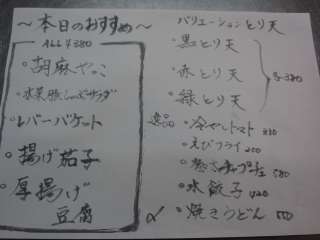 ～本日のおすすめ～
ALL ¥380
・胡麻やっこ
・水菜豚しゃぶサラダ
・レバーバケット
・揚げ茄子
・厚揚げ
豆腐
バリエーションとり天
・黒とり天
・赤とり天
・緑とり天
各380
逸品
・冷やしトマト
・えびフライ 200
・チャプチェ 580
・水餃子 420
・焼きうどん